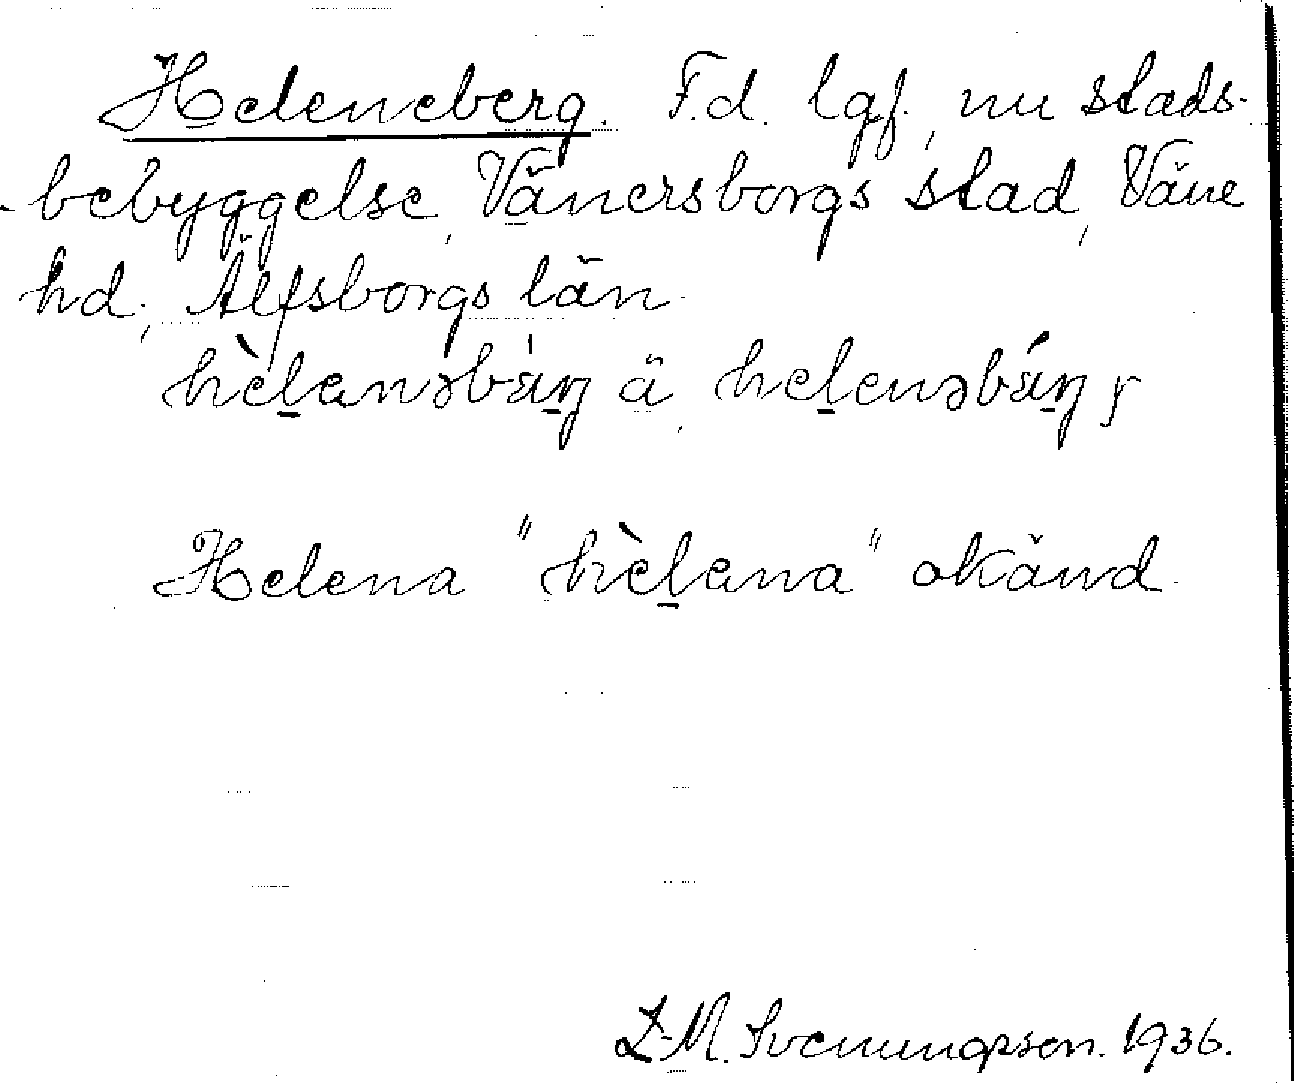 Heleneberg. F.d. lgf., nu stads-
bebyggelse, Vänersborgs stad, Väne
hd., Älfsborgs län.
hèḻanəbáŋ ä, heḻenəbáŋ
Helena "hèḻana" okänd.
L-M. Svenungsson. 1936.